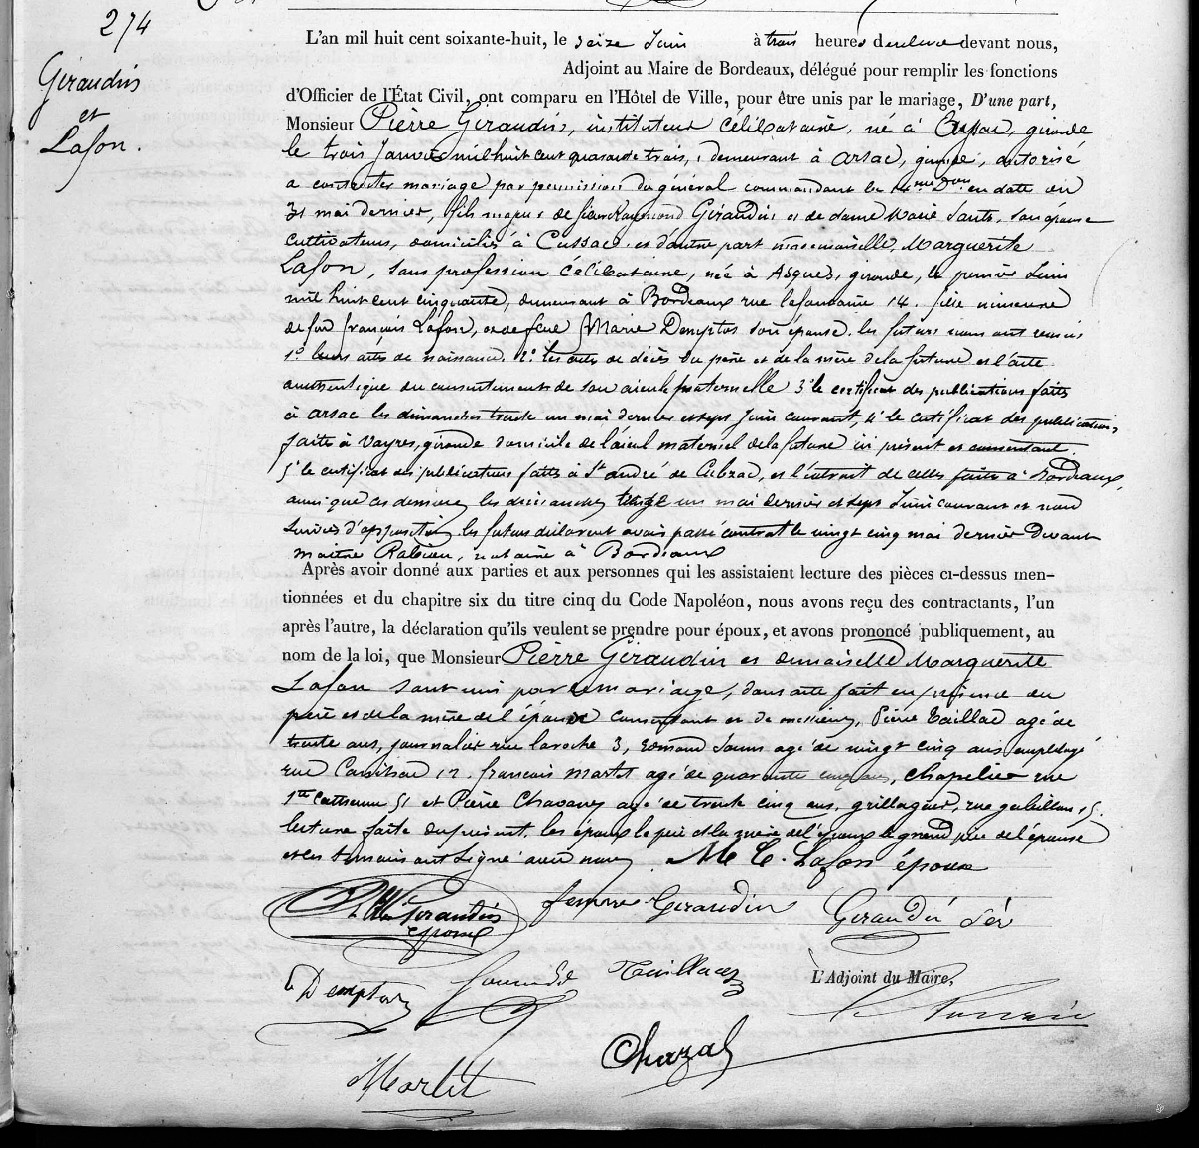 274
Giraudin
et
Lafon.
L'an mil huit cent soixante-huit, le seize Juin à trois heures de relevée devant nous,
Adjoint au Maire de Bordeaux, délégué pour remplir les fonctions
d'Officier de l'État Civil, ont comparu en l'Hôtel de Ville, pour être unis par le mariage, D'une part,
Monsieur Pierre Giraudin, instituteur célibataire, né à Cussac, gironde
le trois Janvier mil huit cent quarante trois, demeurant à arsac, gironde, autorisé
a contracter mariage par permission du général commandant la 14me Don en date du
31 mai dernier, fils majeur de Jean Raymond Giraudin et de dame Marie Santz, son épouse
cultivateurs, domiciliés à Cussac. et d'autre part mademoiselle Marguerite
Lafon, sans profession célibataire, née à Asques, gironde, le premier Juin
mil huit cent cinquante, demeurant à Bordeaux rue 14. fille mineure
de feu françois Lafon, et de feue Marie Demptos son épouse. les futurs nous ont remis
1º leurs actes de naissance. 2º les actes de décès du père et de la mère de la future et l'acte
authentique du consentement de son aieule paternelle 3º le certificat des publications faites
à arsac les dimanches trente un mai dernier et sept Juin courant, 4º le certificat des publications
faites à Vayres, gironde domicile de l'aieul maternel de la future ici présent et consentant.
5º le certificat des publications faites à St andré de Cubzac, et l'extrait de celles faites à Bordeaux,
ainsi que ci dessus, les dimanches trente un mai dernier et sept Juin courant et non
suivies d'opposition. les futurs déclarent avoir passé contrat le vingt cinq mai dernier devant
maitre notaire à Bordeaux
Après avoir donné aux parties et aux personnes qui les assistaient lecture des pièces ci-dessus men-
tionnées et du chapitre six du titre cinq du Code Napoléon, nous avons reçu des contractants, l'un
après l'autre, la déclaration qu'ils veulent se prendre pour époux, et avons prononcé publiquement, au
nom de la loi, que Monsieur Pierre Giraudin et demoiselle Marguerite
Lafon sont unis par le mariage, dont acte fait en présence du
père et de la mère de l'époux consentant et de messieurs, Pierre Taillad agé de
trente ans, journalier rue laroche 3, agé de vingt cinq ans employé
rue 12. françois Martet agé de quarante cinq ans, chapelier rue
Ste Catherine 51 et Pierre agé de trente cinq ans, grillageur, rue
lecture faite du présent, les époux le père et la mère de l'époux le grand père de l'épouse
et les témoins ont signé avec nous. M C. Lafon épouse
Giraudin
époux
femme Giraudin
Giraudin
Demptos
Martet
L'Adjoint du Maire,